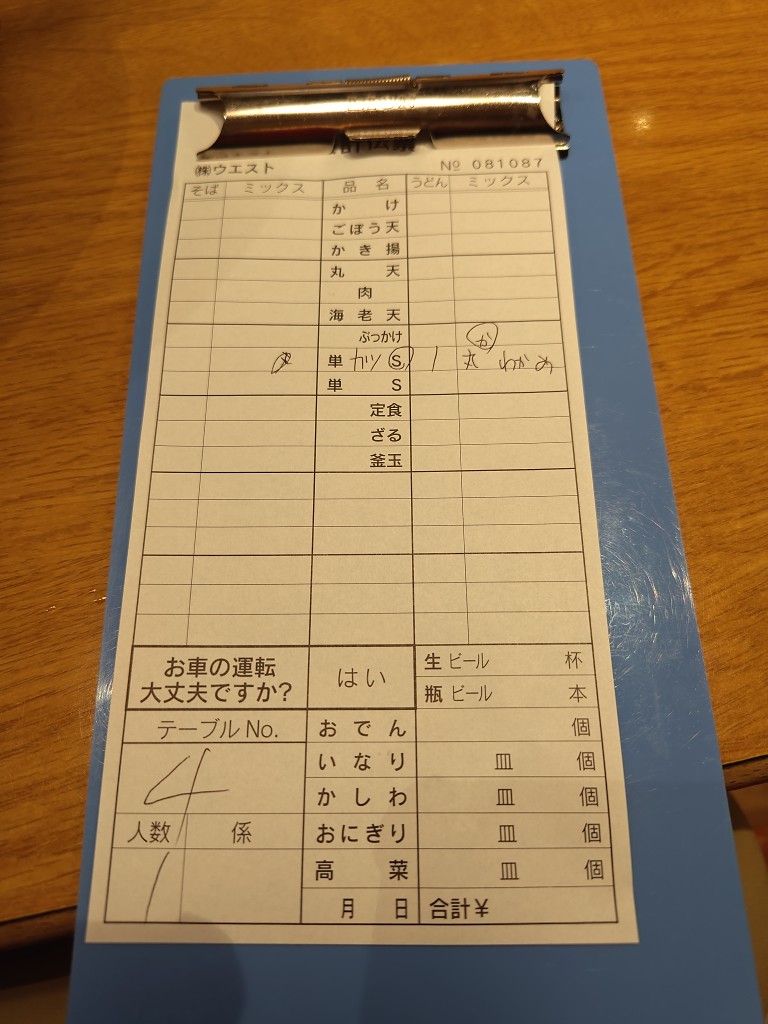 ㈱ウエスト № 081087
そば ミックス 品名 うどん ミックス
かけ
ごぼう天
かき揚
丸天
肉
海老天
ぶっかけ か
単 カツ S 1 丸 わかめ
単 S
定食
ざる
釜玉
お車の運転 はい 生ビール 杯
大丈夫ですか? 瓶ビール 本
テーブルNo. おでん 個
4 いなり 皿 個
かしわ 皿 個
人数 係 おにぎり 皿 個
1 高菜 皿 個
月 日 合計¥